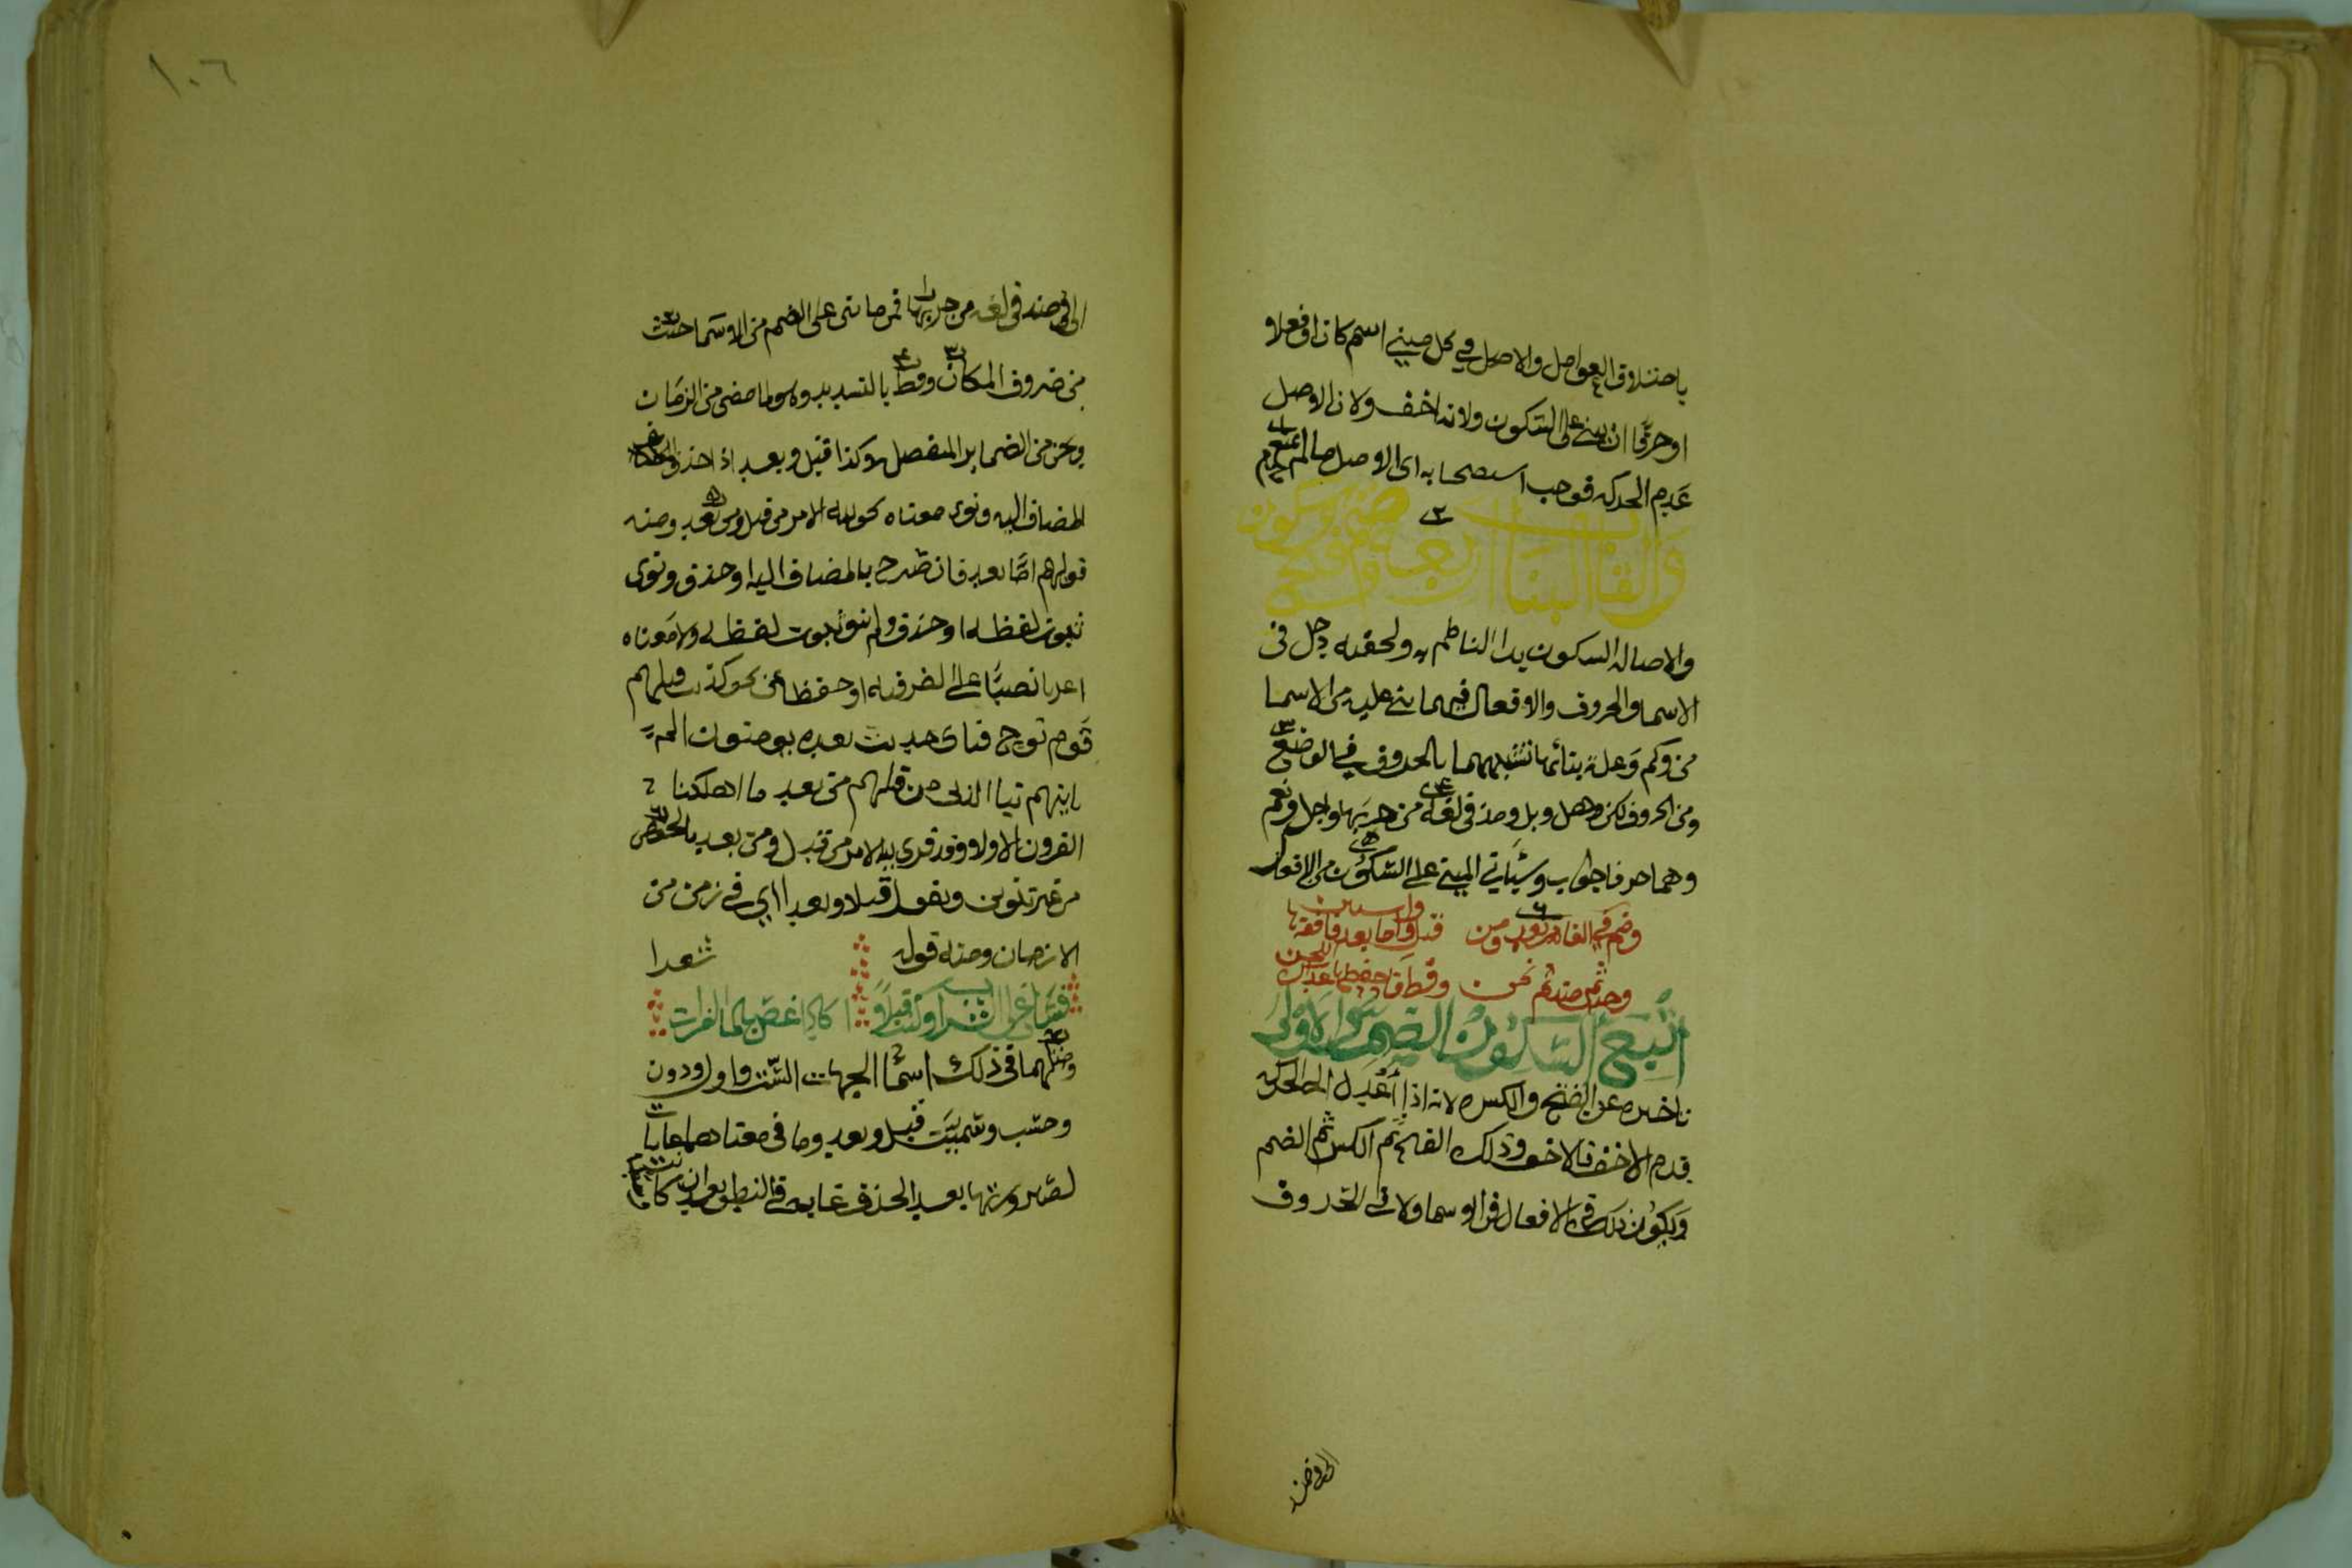 باختلاف العوامل والاصل في كل مبني اسم كان او فعلا و
او حرفا ان يبنى على السكون ولانه اخف ولان الاصل
عدم الحركه فوجب استصحابه اى الاصل ما لم يمنع
والقاب البنا اربع ضم وسكون وفتح
والاصاله السكون بدا الناظم به ولخفته دخل فى
الاسما والحروف والافعال فيهما بني عليه من الاسما
من وكم وعلة بنائهما تشبيههما بالحروف في الوضع
ومن الحروف لكن وهل وبل ومذ فى لغة من جر بها واجل ونعم
وهما حرفا جواب وسيأتي المبني على السكون من الافعال
وضم في الغاية بعد ومن قبل واما بعد فافقه واستبن
وحيث منذ ثم نحن وقط فاحفظها عداك اللحن
اتبع السكون الضم سوا لاول
تاخيره عن الفتح والكسر لانه اذا اعدل الى الحركه
قدم الاخف فالاخف وذلك الفتح ثم الكسر ثم الضم
ويكون ذلك فى الافعال فى الاسما ولا فى الحروف
الا في منذ
١٠٦
الا في منذ فى لغه من جر بها فمن ما بنى على الضم من الاسما حيث
من ضروف المكان وقط بالتشديد وهو لما مضى من الزمان
ونحن من الضماير المنفصل وكذا قبل وبعد اذا حذف
المضاف اليه ونوى معناه نحو لله الامر من قبل ومن بعد ومنه
قولهم اما بعد فان صرح بالمضاف اليه او حذف ونوى
ثبوت لفظه او حذف ولم ينو ثبوت لفظه ولا معناه
اعربا نصبًا على الضرفيه او خفظا بمن نحو كذبت قبلهم
قوم نوح فباى حديث بعده يومنون الم
ياتهم نبا الذين من قبلهم من بعد ما اهلكنا
القرون الاولى وقد قرى لله الامر من قبل ومن بعد بالخفض
من غير تنوين وبقول قبلا وبعدا اي في زمن من
الازمان ومنه قوله شعرا
فساغ لي الشراب وكنت قبلاً اكاد اغص بالما الفرات
ومثلهما فى ذلك اسما الجهات الست واول ودون
وحسب وسميت قبل وبعد وما فى معناهما غايات
لصيرورتها بعد الحذف غايه فى النطق بعد ان كانت